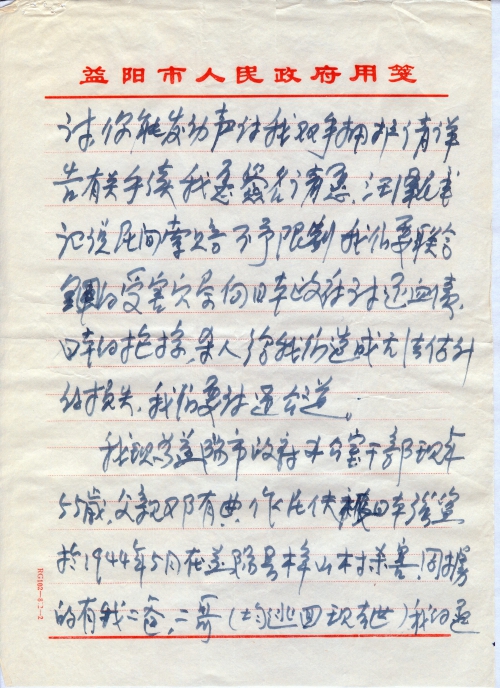 益阳市人民政府用笺
讨,你能发动声讨我双手拥护,请详
告有关手续,我愿签名请愿,江泽民书
记说民间索赔不予限制,我们要联合
全国的受害 向日本政府讨还血债,
日本的抢掠,杀人给我们造成无法估计
的损失,我们要讨还公道。
我现为益阳市政府办公室干部现年
55岁,父亲邓有典,作民伕被日本强
於1944年5月在益阳县 山村杀害,同掳
的有我二爸,二哥(均逃回现去世)我的